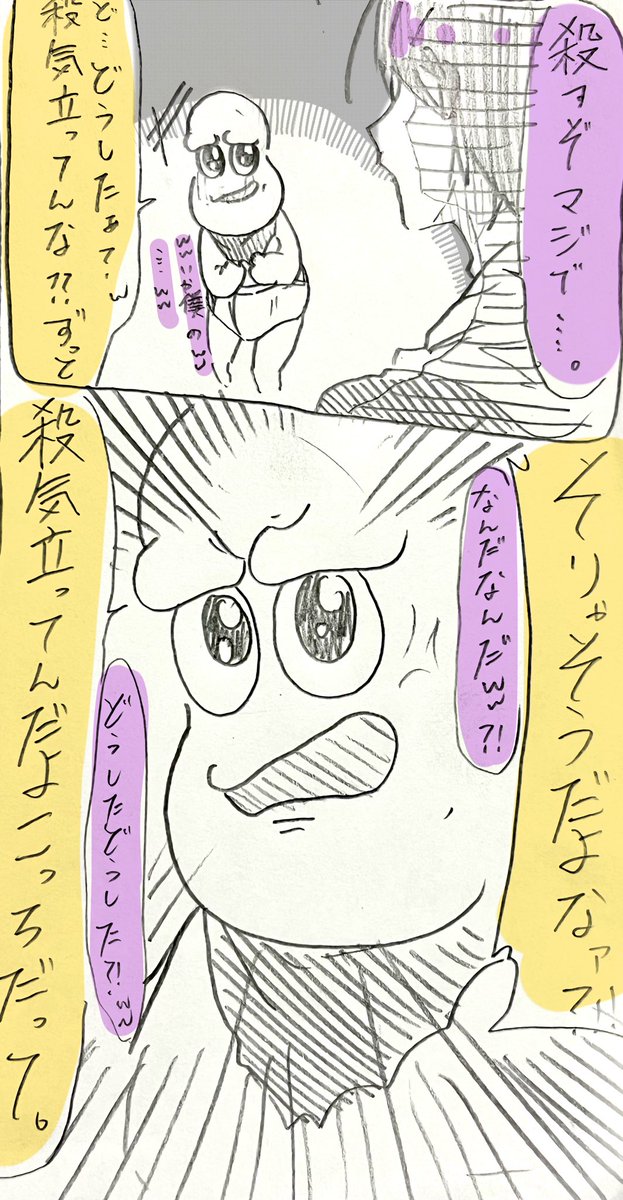 殺すぞマジで…。
ど…どうしたぁ?w
殺気立ってんな??ずっと
そりゃそうだよなァ?!!
なんだなんだww?!
どうしたどうした?!ww
殺気立ってんだよこっちだって。